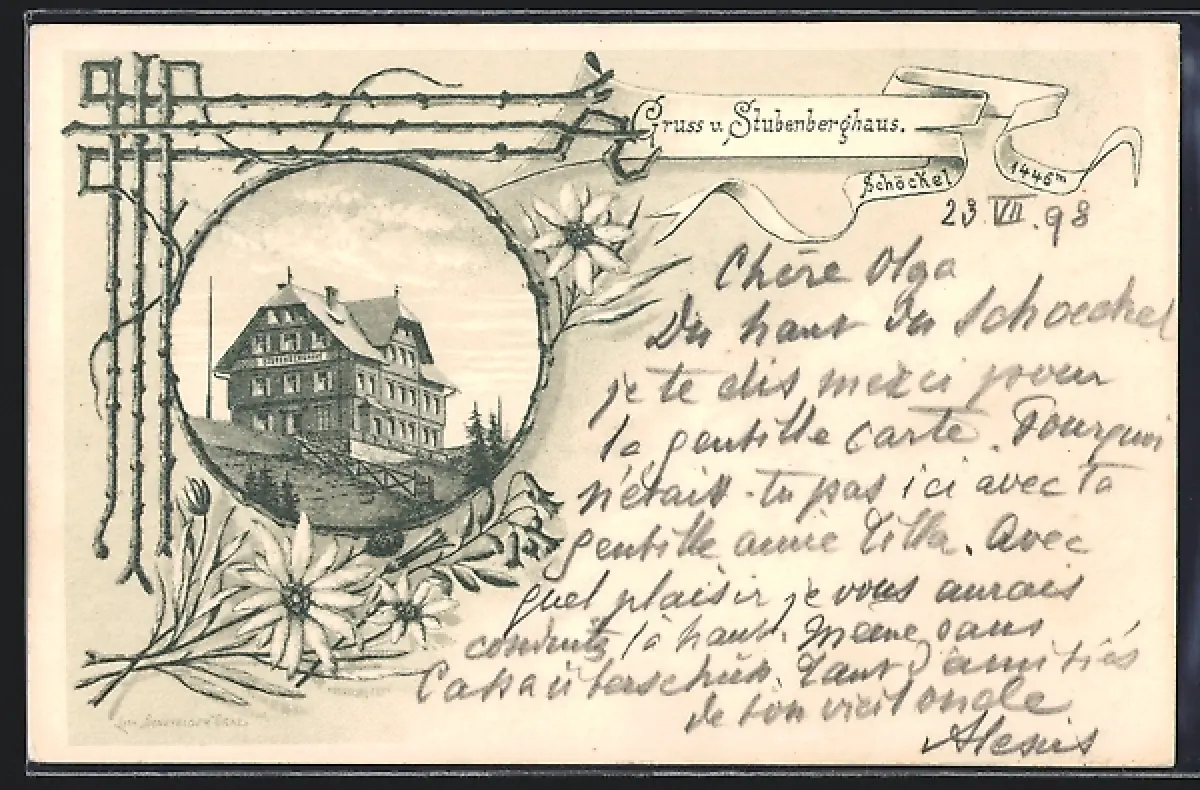 Gruss v. Stubenberghaus.
Schöckel 1446m
23 VII. 98
Chère Olga
Du haut du Schoeckel
je te dis merci pour
la gentille carte. Pourquoi
n'étais-tu pas ici avec ta
gentille amie Tilla. Avec
quel plaisir je vous aurais
conduits là haut. Meme sans
Tant d'amitiés
de ton vieil oncle
Alexis